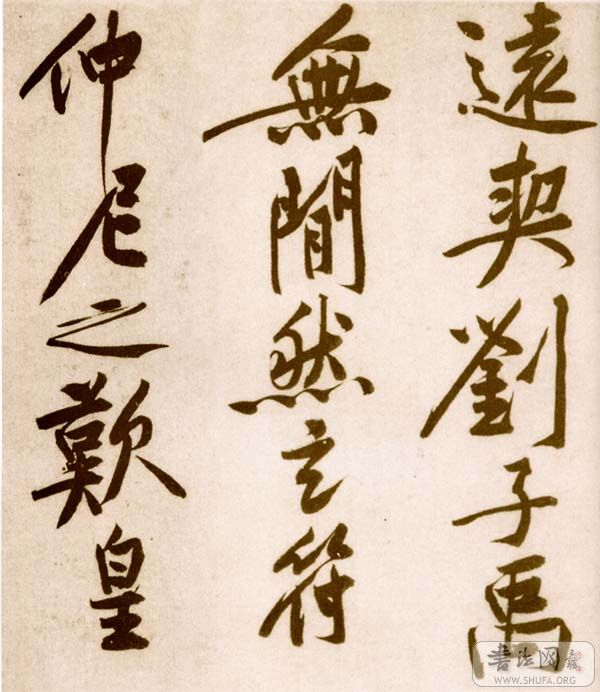 遠契劉子禹
無閒然玄符
仲尼之歎皇
書法网
WWW.SHUFA.ORG